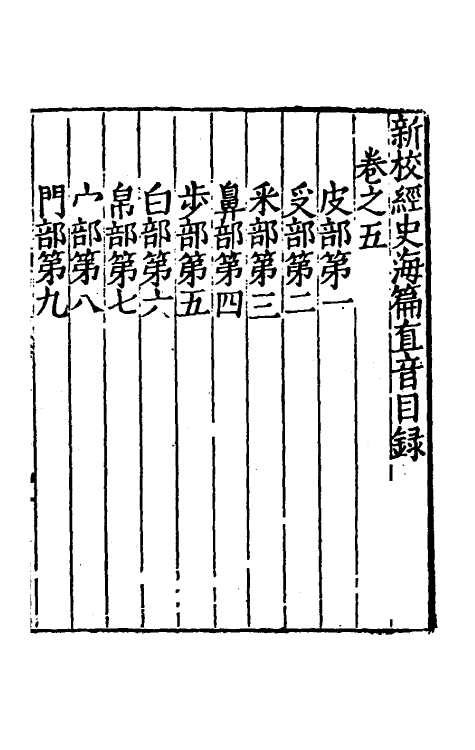 新校經史海篇直音目録
卷之五
皮部第一
受部第二
釆部第三
鼻部第四
步部第五
白部第六
帛部第七
宀部第八
門部第九